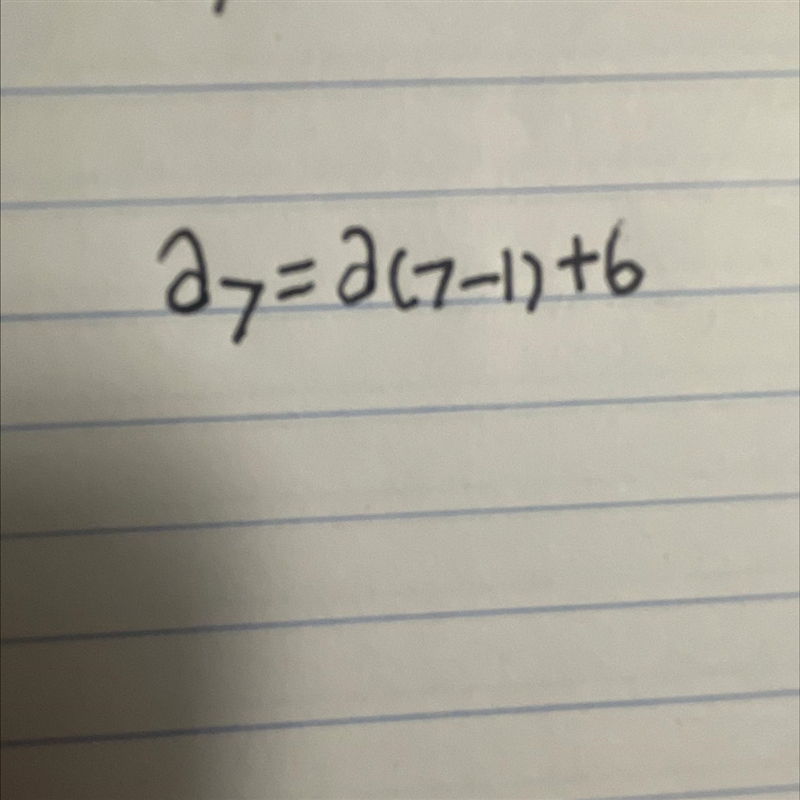 a₇ = a(7-1) + 6